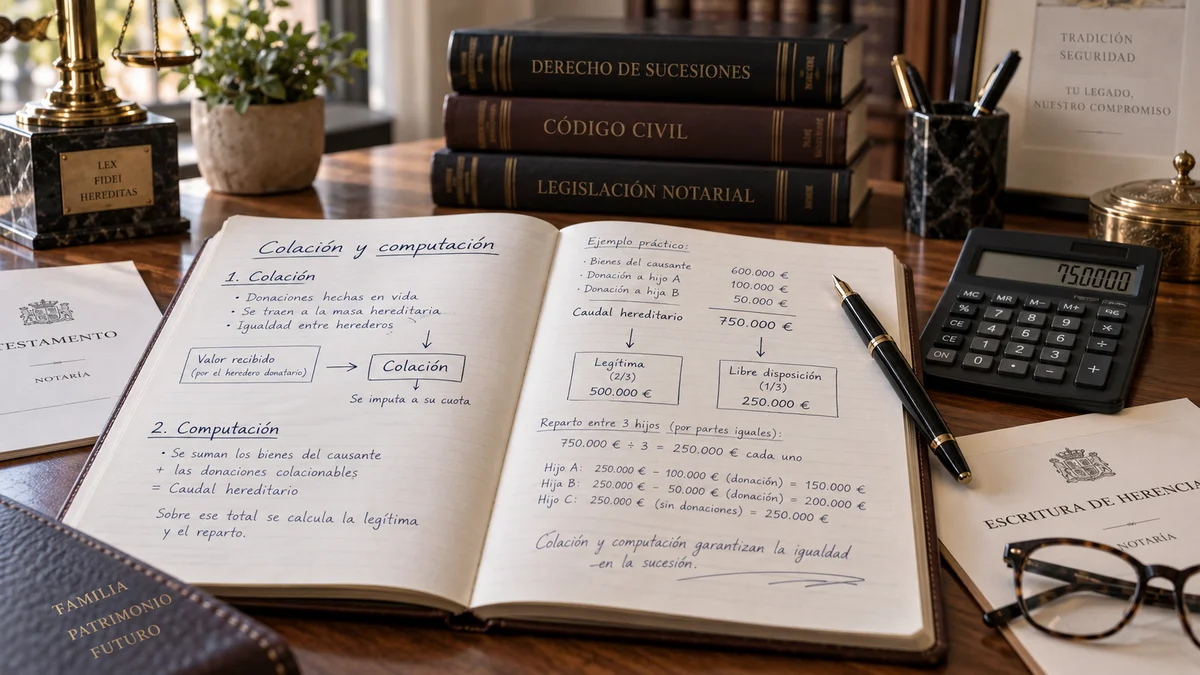 LEX
FIDEI
HEREDITAS
DERECHO DE SUCESIONES
CÓDIGO CIVIL
LEGISLACIÓN NOTARIAL
TRADICIÓN
SEGURIDAD
TU LEGADO,
NUESTRO COMPROMISO
TESTAMENTO
NOTARÍA
Colación y computación
1. Colación
• Donaciones hechas en vida
• Se traen a la masa hereditaria
• Igualdad entre herederos
Valor recibido
(por el heredero donatario)
Colación
Se imputa a su cuota
2. Computación
• Se suman los bienes del causante
+ las donaciones colacionables
= Caudal hereditario
Sobre ese total se calcula la legítima
y el reparto.
Ejemplo práctico:
· Bienes del causante 600.000 €
· Donación a hijo A 100.000 €
· Donación a hija B 50.000 €
Caudal hereditario 750.000 €
Legítima
(2/3)
500.000 €
Libre disposición
(1/3)
250.000 €
Reparto entre 3 hijos (por partes iguales):
750.000 € ÷ 3 = 250.000 € cada uno
Hijo A: 250.000 € – 100.000 € (donación) = 150.000 €
Hija B: 250.000 € – 50.000 € (donación) = 200.000 €
Hijo C: 250.000 € (sin donaciones) = 250.000 €
Colación y computación garantizan la igualdad
en la sucesión.
750000
MC MR M- M+
CE 7 8 9 ×
CE 4 5 6 ÷
ON 0 • – +
ESCRITURA DE HERENCIA
NOTARÍA
FAMILIA
PATRIMONIO
FUTURO